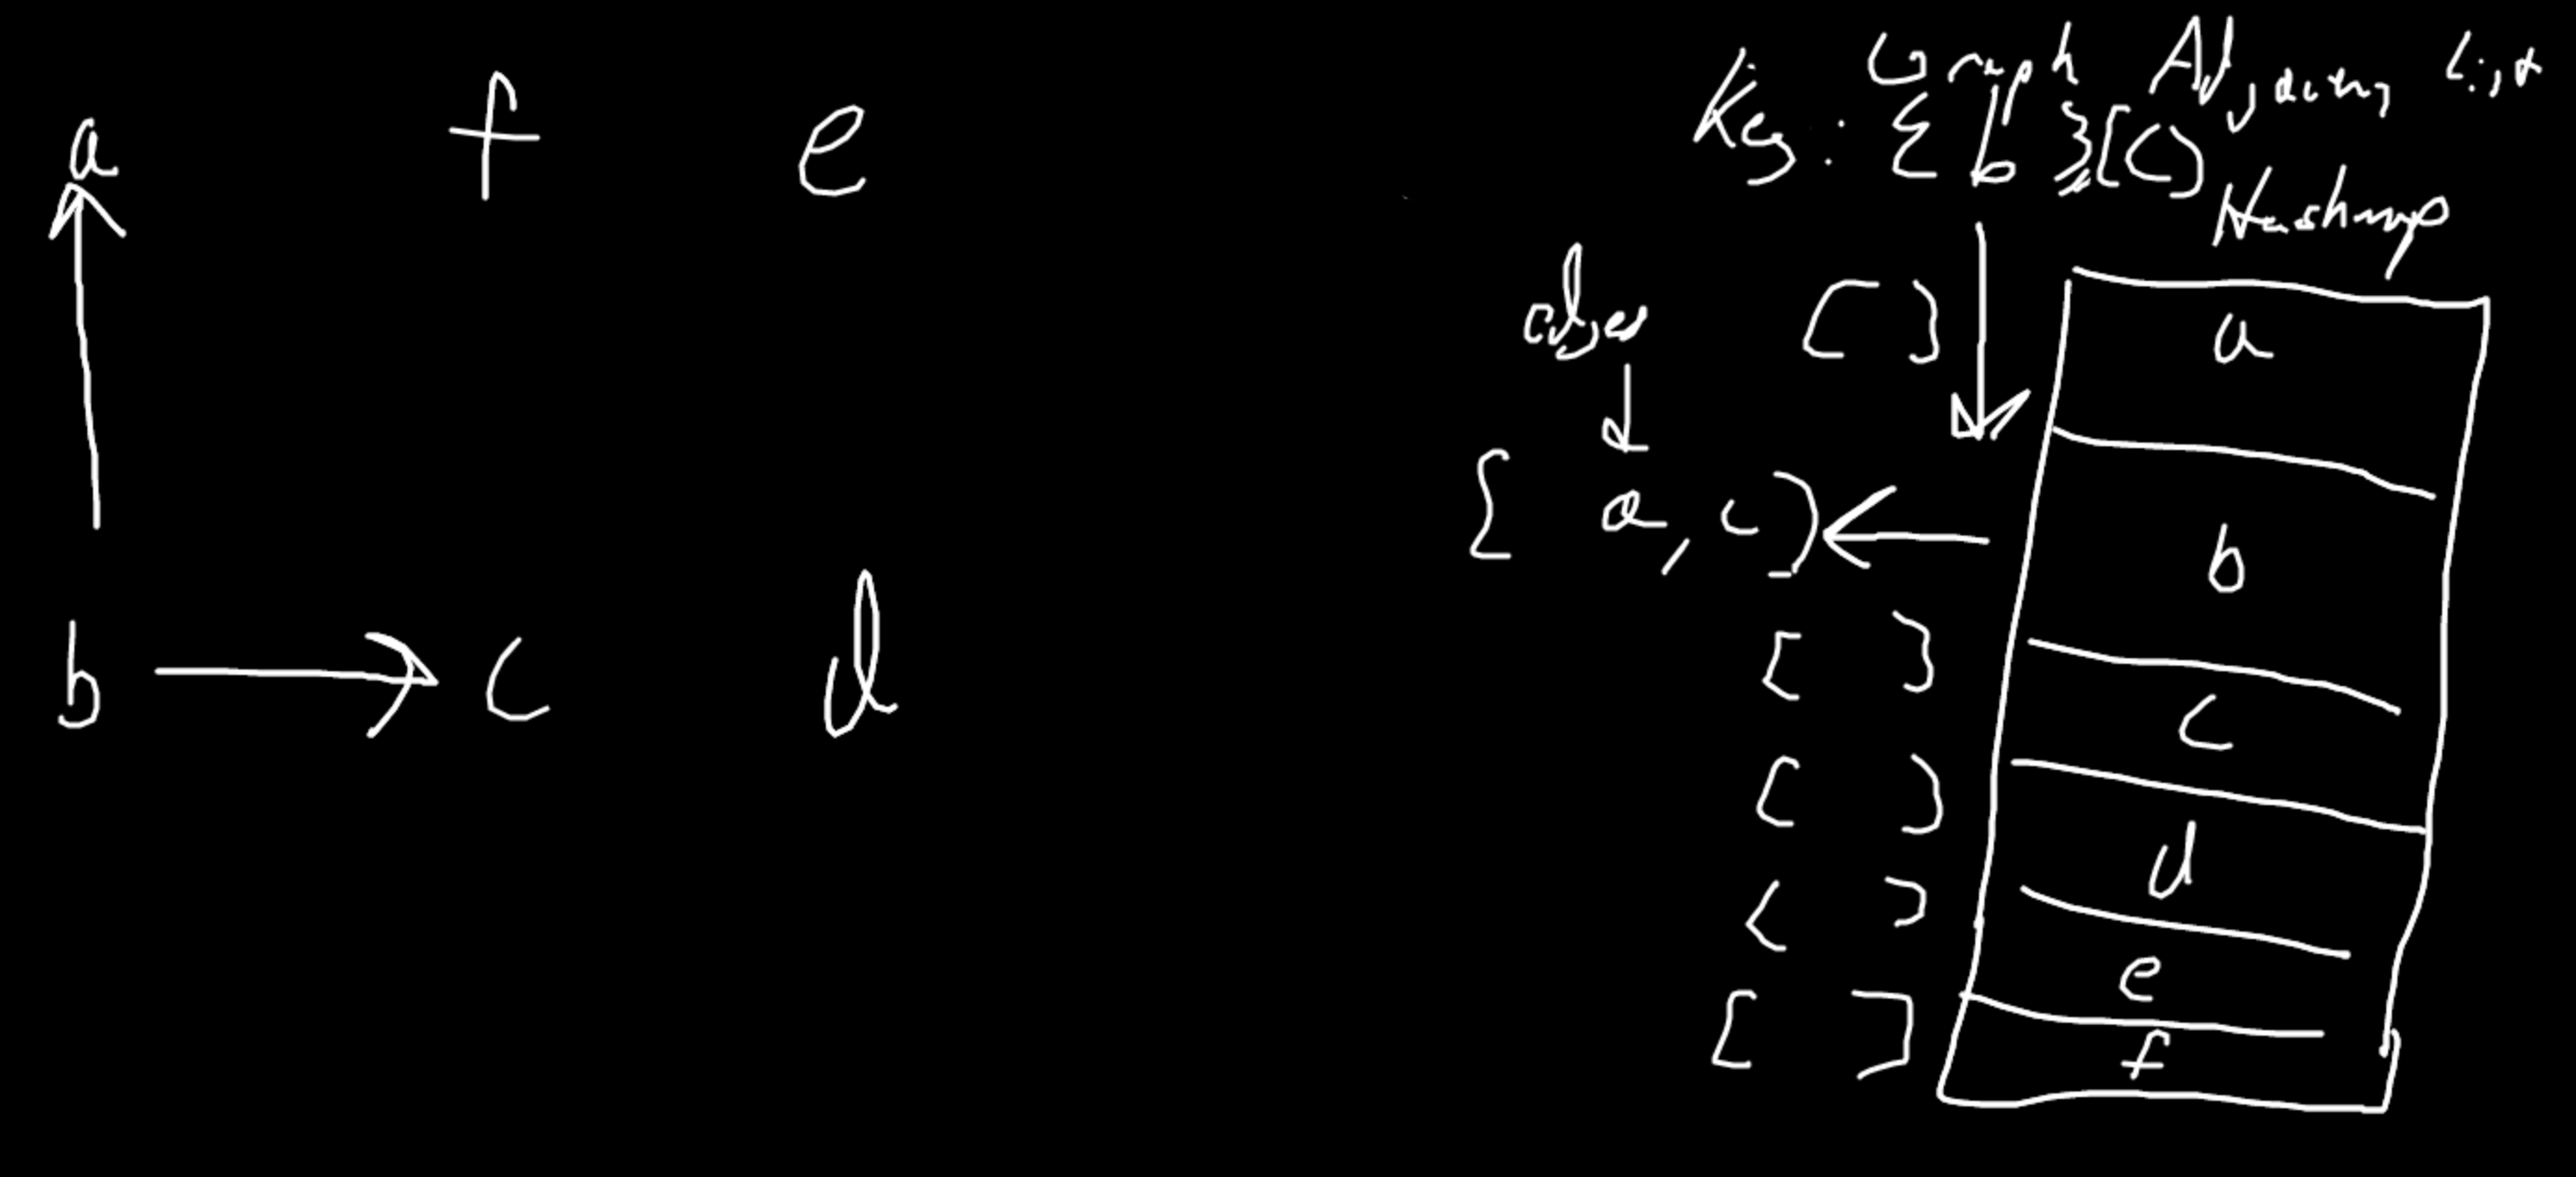 a f e
b c d
Graph Adjacency List
Key: { b } [C]
Hashmap
edges
[ ] a
[ a, c ] b
[ ] c
[ ] d
[ ] e
[ ] f